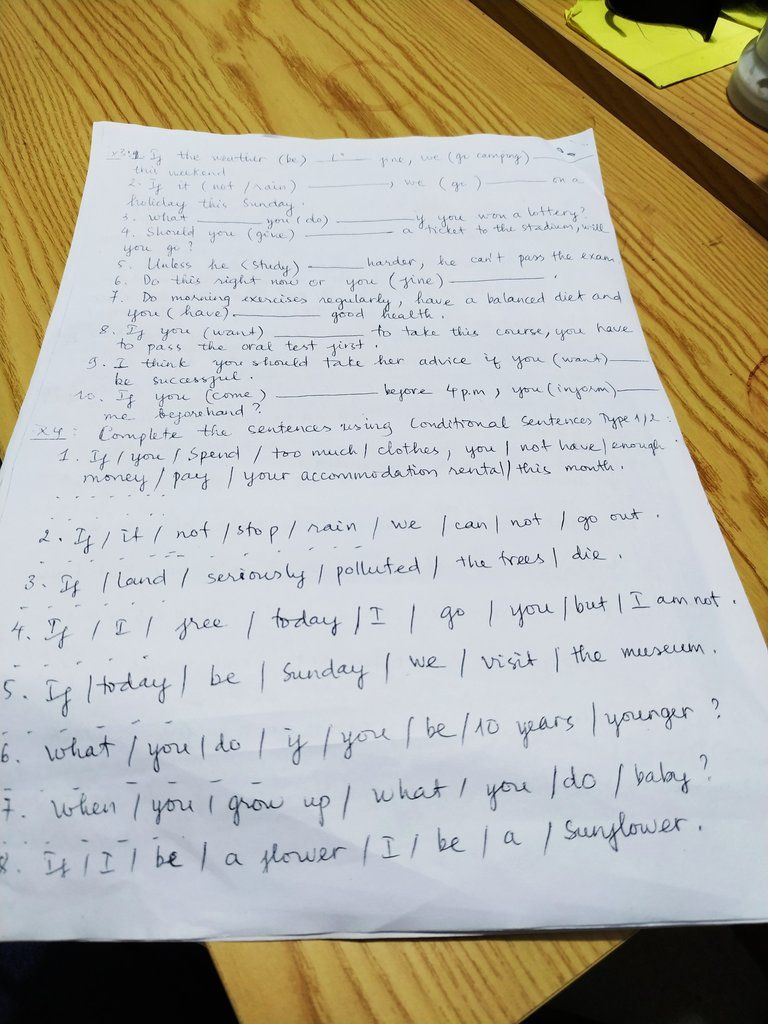 x3: 1. If the weather (be) _______ fine, we (go camping) _______
this weekend
2. If it (not / rain) _______, we (go) _______ on a
holiday this Sunday.
3. What _______ you (do) _______ if you won a lottery?
4. Should you (give) _______ a ticket to the stadium, will
you go?
5. Unless he (study) _______ harder, he can't pass the exam
6. Do this right now or you (fine) _______.
7. Do morning exercises regularly, have a balanced diet and
you (have) _______ good health.
8. If you (want) _______ to take this course, you have
to pass the oral test first.
9. I think you should take her advice if you (want) _______
be successful.
10. If you (come) _______ before 4 p.m, you (inform) _______
me beforehand?
x4: Complete the sentences using Conditional Sentences Type 1/2:
1. If / you / spend / too much / clothes, you / not have / enough
money / pay / your accommodation rental / this month.
2. If / it / not / stop / rain / we / can / not / go out.
3. If / land / seriously / polluted / the trees / die.
4. If / I / free / today / I / go / you / but / I am not.
5. If / today / be / Sunday / we / visit / the museum.
6. What / you / do / if / you / be / 10 years / younger?
7. When / you / grow up / what / you / do / baby?
8. If / I / be / a flower / I / be / a / sunflower.